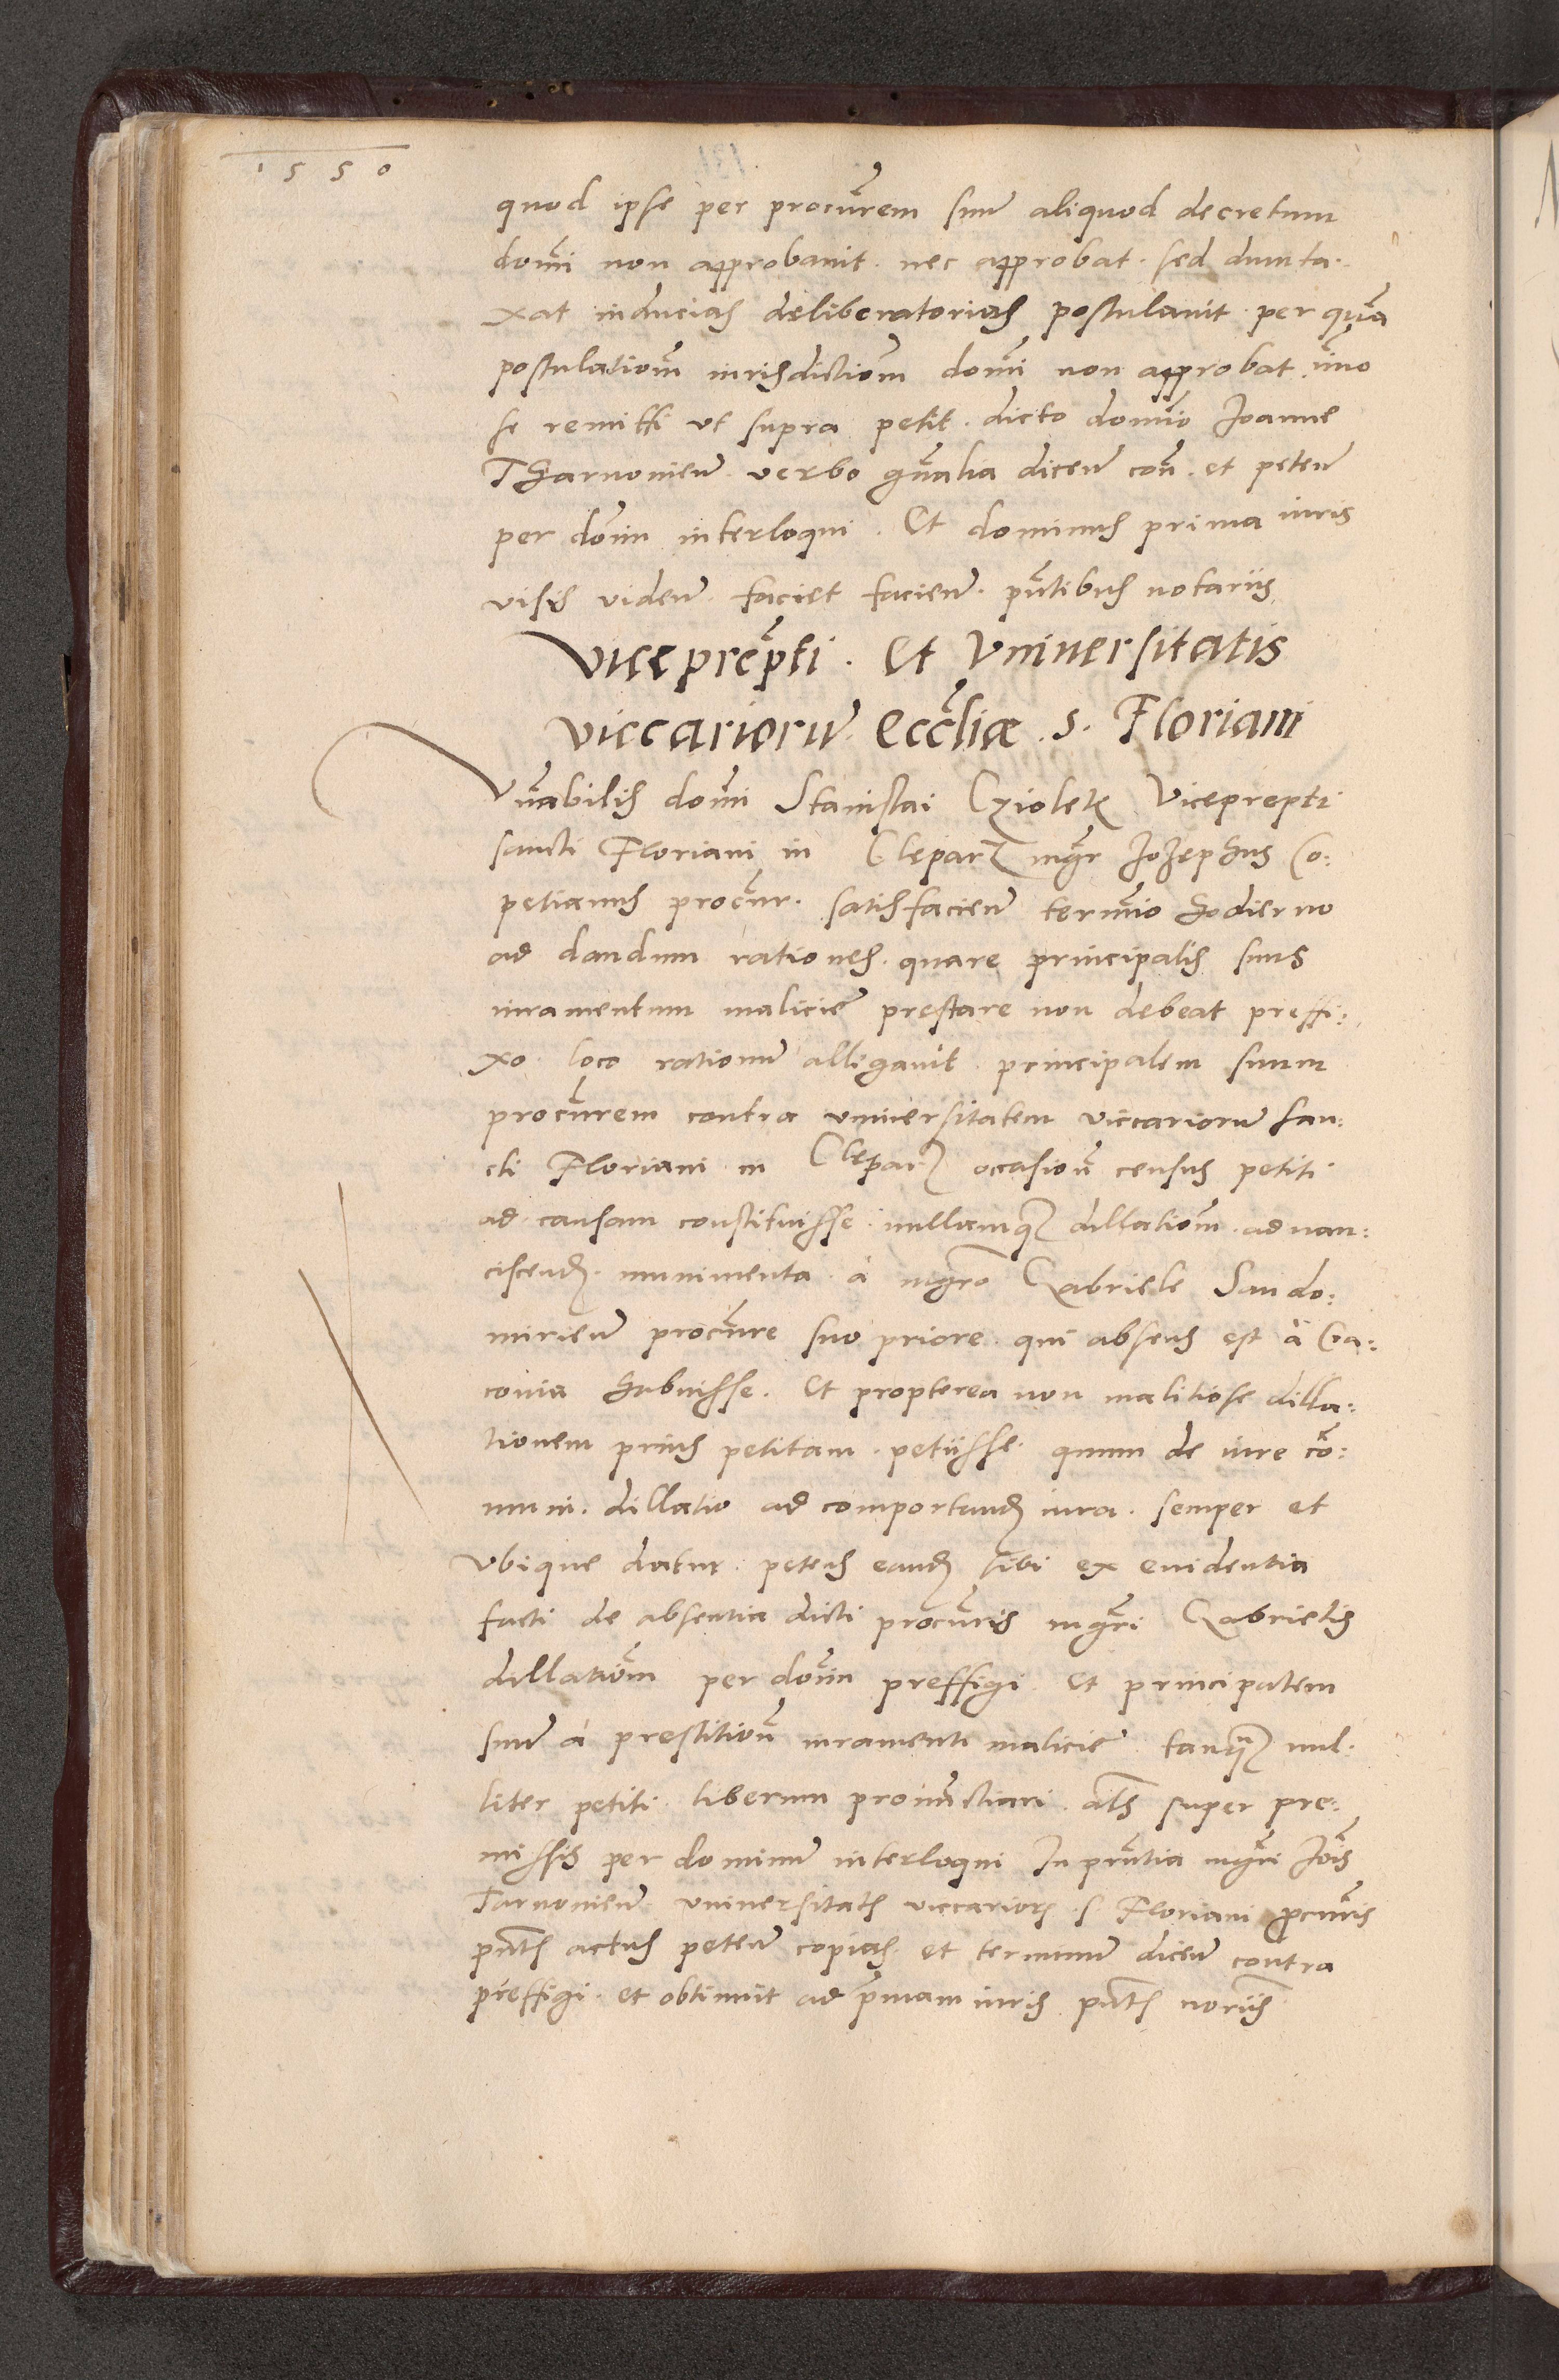 1550
quod ipse per procūrem suū aliquod decretum
domī non approbauit. nec approbat. sed dunta.
xat inducias deliberatorias postulauit. per quā
postulationē iurisdictionē domī non approbat. imo
se remitti vt supra petit. dicto domīo Joanne
Tharnonień. verbo gnalia diceń coń. et peteń
per dom̄ interloqui. Et dominus prima iuris
visis videń. faciet facień. pn̄tibus notariis
Viceprep̄ti. Et Vniuersitatis
viccariorū Eccl̄iæ. S. Floriani
Vn̄abilis domī Stanislai Cziolek Viceprepti
sancti Floriani in Clepar[z] mgr̄ Jozephus Co:
petianus procur̄. satisfacień termīo hodierno
ad dandum rationes. quare principalis suus
iuramentum malicie prestare non debeat preffi:
xo. loco rationū allegauit. principalem suum
procūrem contra vniuersitatem viccariorū san:
cti Floriani in Clepar[z] occasioń census petiti
ad causam constituisse. nullamq3 dillationē. ad nan:
ciscend. munimenta. à mgr̄o Gabriele Sando:
mirień procūre suo priore. qui absens est à Cra:
couia habuisse. Et propterea non malitiose dilla:
tionem prius petitam. petiisse. quum de iure cō:
muni. dillatio ad comportand iura. semper et
vbique datur. petens eand sibi ex euidentia
facti de absentia dicti procūris mgr̄i Gabrielis
dillationē per dom̄ preffigi. Et principalem
suū à prestitioń iuramenti malicie tanq̄3 nul.
liter petiti. liberum pronūnctiari. al̄s super pre:
missis per dominū interloqui In pn̄tia mgr̄i Joīs
Tarnonień vniuersitatis viccarior S Floriani procūris
pn̄tis actus peteń copias. et terminū diceń contra
preffigi. et obtinuit ad p̄mam iuris. pn̄tis nor̄iis